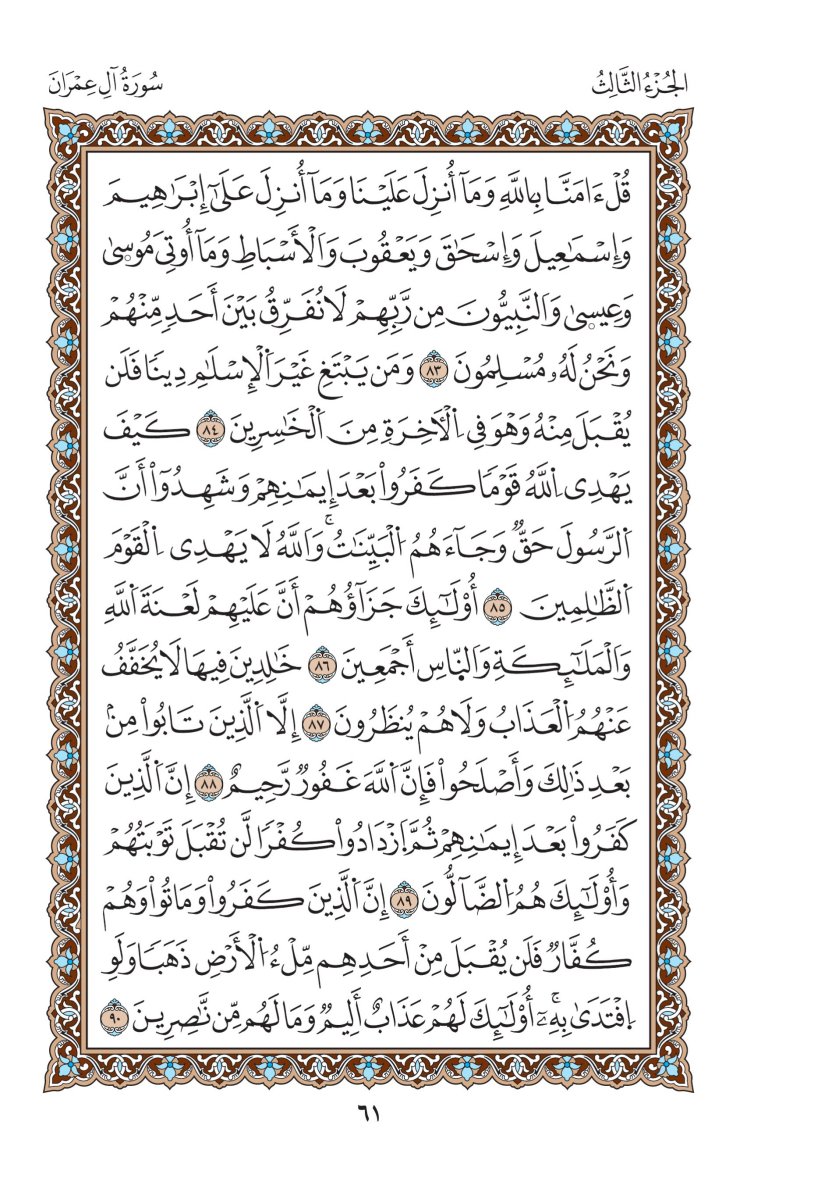 الجُزْءُ الثَّالِثُ
سُورَةُ آلِ عِمْرَانَ
قُلْ ءَامَنَّا بِاللَّهِ وَمَآ أُنزِلَ عَلَيْنَا وَمَآ أُنزِلَ عَلَىٰٓ إِبْرَٰهِيمَ
وَإِسْمَٰعِيلَ وَإِسْحَٰقَ وَيَعْقُوبَ وَالْأَسْبَاطِ وَمَآ أُوتِيَ مُوسۭىٰ
وَعِيسۭىٰ وَالنَّبِيُّونَ مِن رَّبِّهِمْ لَا نُفَرِّقُ بَيْنَ أَحَدٍ مِّنْهُمْ
وَنَحْنُ لَهُۥ مُسْلِمُونَ ٨٣ وَمَن يَبْتَغِ غَيْرَ اَلْإِسْلَٰمِ دِينًا فَلَن
يُقْبَلَ مِنْهُ وَهْوَ فِي اِلْأٓخِرَةِ مِنَ اَلْخَٰسِرِينَ ٨٤ كَيْفَ
يَهْدِي اِللَّهُ قَوْمًا كَفَرُوا۟ بَعْدَ إِيمَٰنِهِمْ وَشَهِدُوٓا۟ أَنَّ
اَلرَّسُولَ حَقٌّ وَجَآءَهُمُ اُلْبَيِّنَٰتُۚ وَاللَّهُ لَا يَهْدِي اِلْقَوْمَ
اَلظَّٰلِمِينَ ٨٥ أُو۟لَٰٓئِكَ جَزَآؤُهُمْ أَنَّ عَلَيْهِمْ لَعْنَةَ اَللَّهِ
وَالْمَلَٰٓئِكَةِ وَالنَّاسِ أَجْمَعِينَ ٨٦ خَٰلِدِينَ فِيهَا لَا يُخَفَّفُ
عَنْهُمُ اُلْعَذَابُ وَلَا هُمْ يُنظَرُونَ ٨٧ إِلَّا اَلَّذِينَ تَابُوا۟ مِنۢ
بَعْدِ ذَٰلِكَ وَأَصْلَحُوا۟ فَإِنَّ اَللَّهَ غَفُورٌ رَّحِيمٌ ٨٨ إِنَّ اَلَّذِينَ
كَفَرُوا۟ بَعْدَ إِيمَٰنِهِمْ ثُمَّ اَزْدَادُوا۟ كُفْرًا لَّن تُقْبَلَ تَوْبَتُهُمْ
وَأُو۟لَٰٓئِكَ هُمُ اُلضَّآلُّونَ ٨٩ إِنَّ اَلَّذِينَ كَفَرُوا۟ وَمَاتُوا۟ وَهُمْ
كُفَّارٌ فَلَن يُقْبَلَ مِنْ أَحَدِهِم مِّلْءُ اُلْأَرْضِ ذَهَبًا وَلَوِ
اِفْتَدَىٰ بِهِۦٓۚ أُو۟لَٰٓئِكَ لَهُمْ عَذَابٌ أَلِيمٌ وَمَا لَهُم مِّن نَّٰصِرِينَ ٩٠
٦١